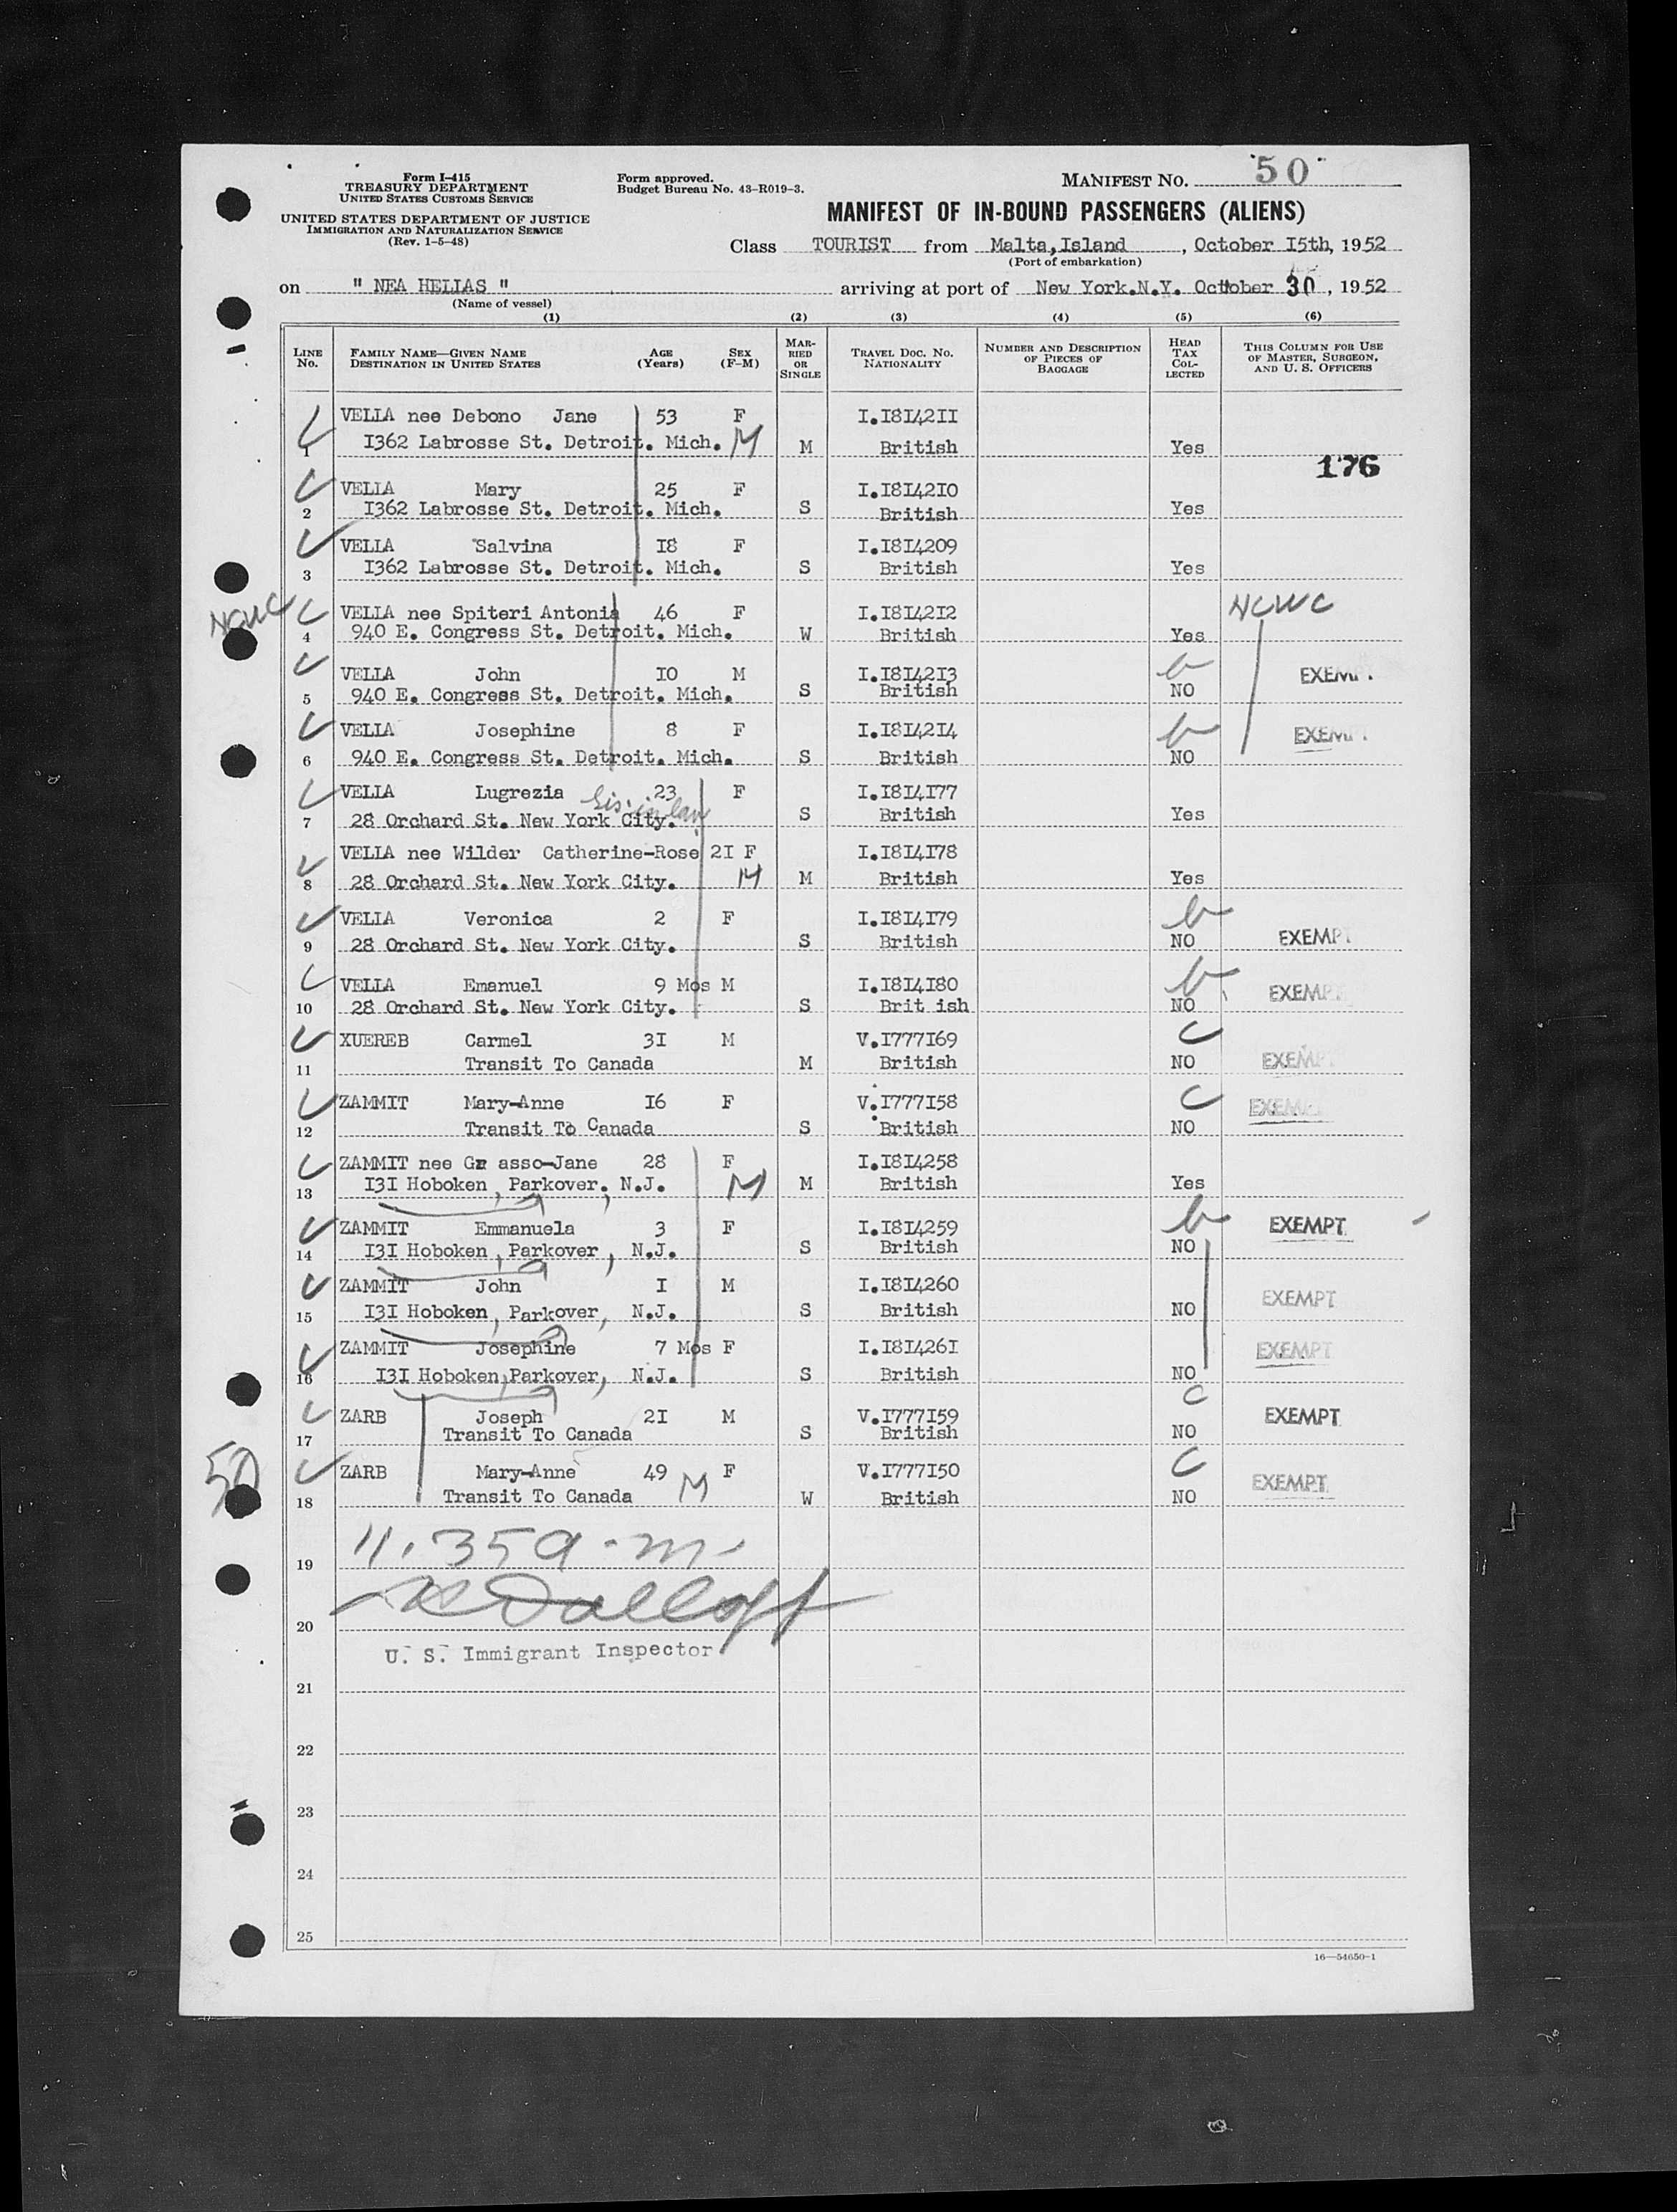 Form I-415
TREASURY DEPARTMENT
UNITED STATES CUSTOMS SERVICE
UNITED STATES DEPARTMENT OF JUSTICE
IMMIGRATION AND NATURALIZATION SERVICE
(Rev. 1-5-48)
Form approved.
Budget Bureau No. 43-R019-3.
MANIFEST NO. 50
MANIFEST OF IN-BOUND PASSENGERS (ALIENS)
Class TOURIST from Malta,Island , October I5th, 1952
(Port of embarkation)
on " NEA HELIAS " arriving at port of New York.N.Y. October 30 , 1952
(Name of vessel)
(1) (2) (3) (4) (5) (6)
LINE No. FAMILY NAME—GIVEN NAME DESTINATION IN UNITED STATES AGE (Years) SEX (F-M) MARRIED OR SINGLE TRAVEL DOC. NO. NATIONALITY NUMBER AND DESCRIPTION OF PIECES OF BAGGAGE HEAD TAX COLLECTED THIS COLUMN FOR USE OF MASTER, SURGEON, AND U. S. OFFICERS
VELLA nee Debono Jane 53 F I.I8I42II
1 I362 Labrosse St. Detroit. Mich. M M British Yes
176
VELLA Mary 25 F I.I8I42I0
2 I362 Labrosse St. Detroit. Mich. S British Yes
VELLA Salvina I8 F I.I8I4209
3 I362 Labrosse St. Detroit. Mich. S British Yes
NCWC VELLA nee Spiteri Antonia 46 F I.I8I42I2 NCWC
4 940 E. Congress St. Detroit. Mich. W British Yes
VELLA John IO M I.I8I42I3 b EXEMPT
5 940 E. Congress St. Detroit. Mich. S British NO
VELLA Josephine 8 F I.I8I42I4 b EXEMPT
6 940 E. Congress St. Detroit. Mich. S British NO
VELLA Lugrezia 23 F I.I8I4I77
Sis. in law
7 28 Orchard St. New York City. S British Yes
VELLA nee Wilder Catherine-Rose 2I F I.I8I4I78
8 28 Orchard St. New York City. M M British Yes
VELLA Veronica 2 F I.I8I4I79 b
9 28 Orchard St. New York City. S British NO EXEMPT
VELLA Emanuel 9 Mos M I.I8I4I80 b EXEMPT
10 28 Orchard St. New York City. S Brit ish NO
XUEREB Carmel 3I M V.I777I69 C
11 Transit To Canada M British NO EXEMPT
ZAMMIT Mary-Anne I6 F V.I777I58 C EXEMPT
12 Transit To Canada S British NO
ZAMMIT nee Gr asso-Jane 28 F I.I8I4258
13 I3I Hoboken, Parkover. N.J. M M British Yes
ZAMMIT Emmanuela 3 F I.I8I4259 b EXEMPT
14 I3I Hoboken, Parkover, N.J. S British NO
ZAMMIT John I M I.I8I4260 EXEMPT
15 I3I Hoboken, Parkover, N.J. S British NO
ZAMMIT Josephine 7 Mos F I.I8I426I EXEMPT
16 I3I Hoboken, Parkover, N.J. S British NO
ZARB Joseph 2I M V.I777I59 C EXEMPT
17 Transit To Canada S British NO
50 ZARB Mary-Anne 49 F V.I777I50 C EXEMPT
18 Transit To Canada M W British NO
19 11.35 a.m.
20
U. S. Immigrant Inspector
21
22
23
24
25
16—54650-1